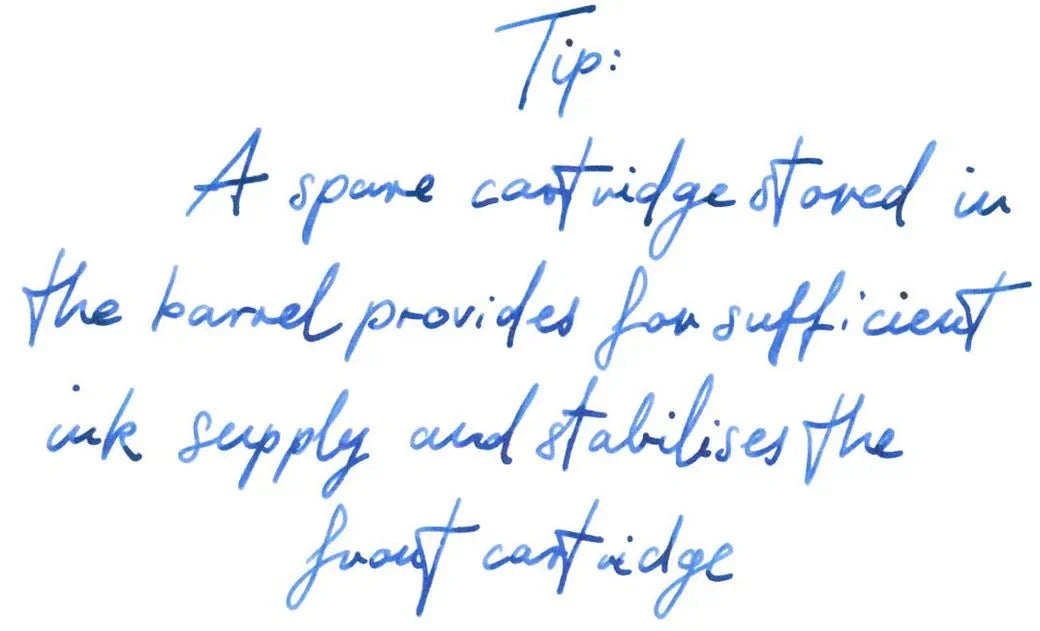 Tip:
A spare cartridge stored in
the barrel provides for sufficient
ink supply and stabilises the
front cartridge